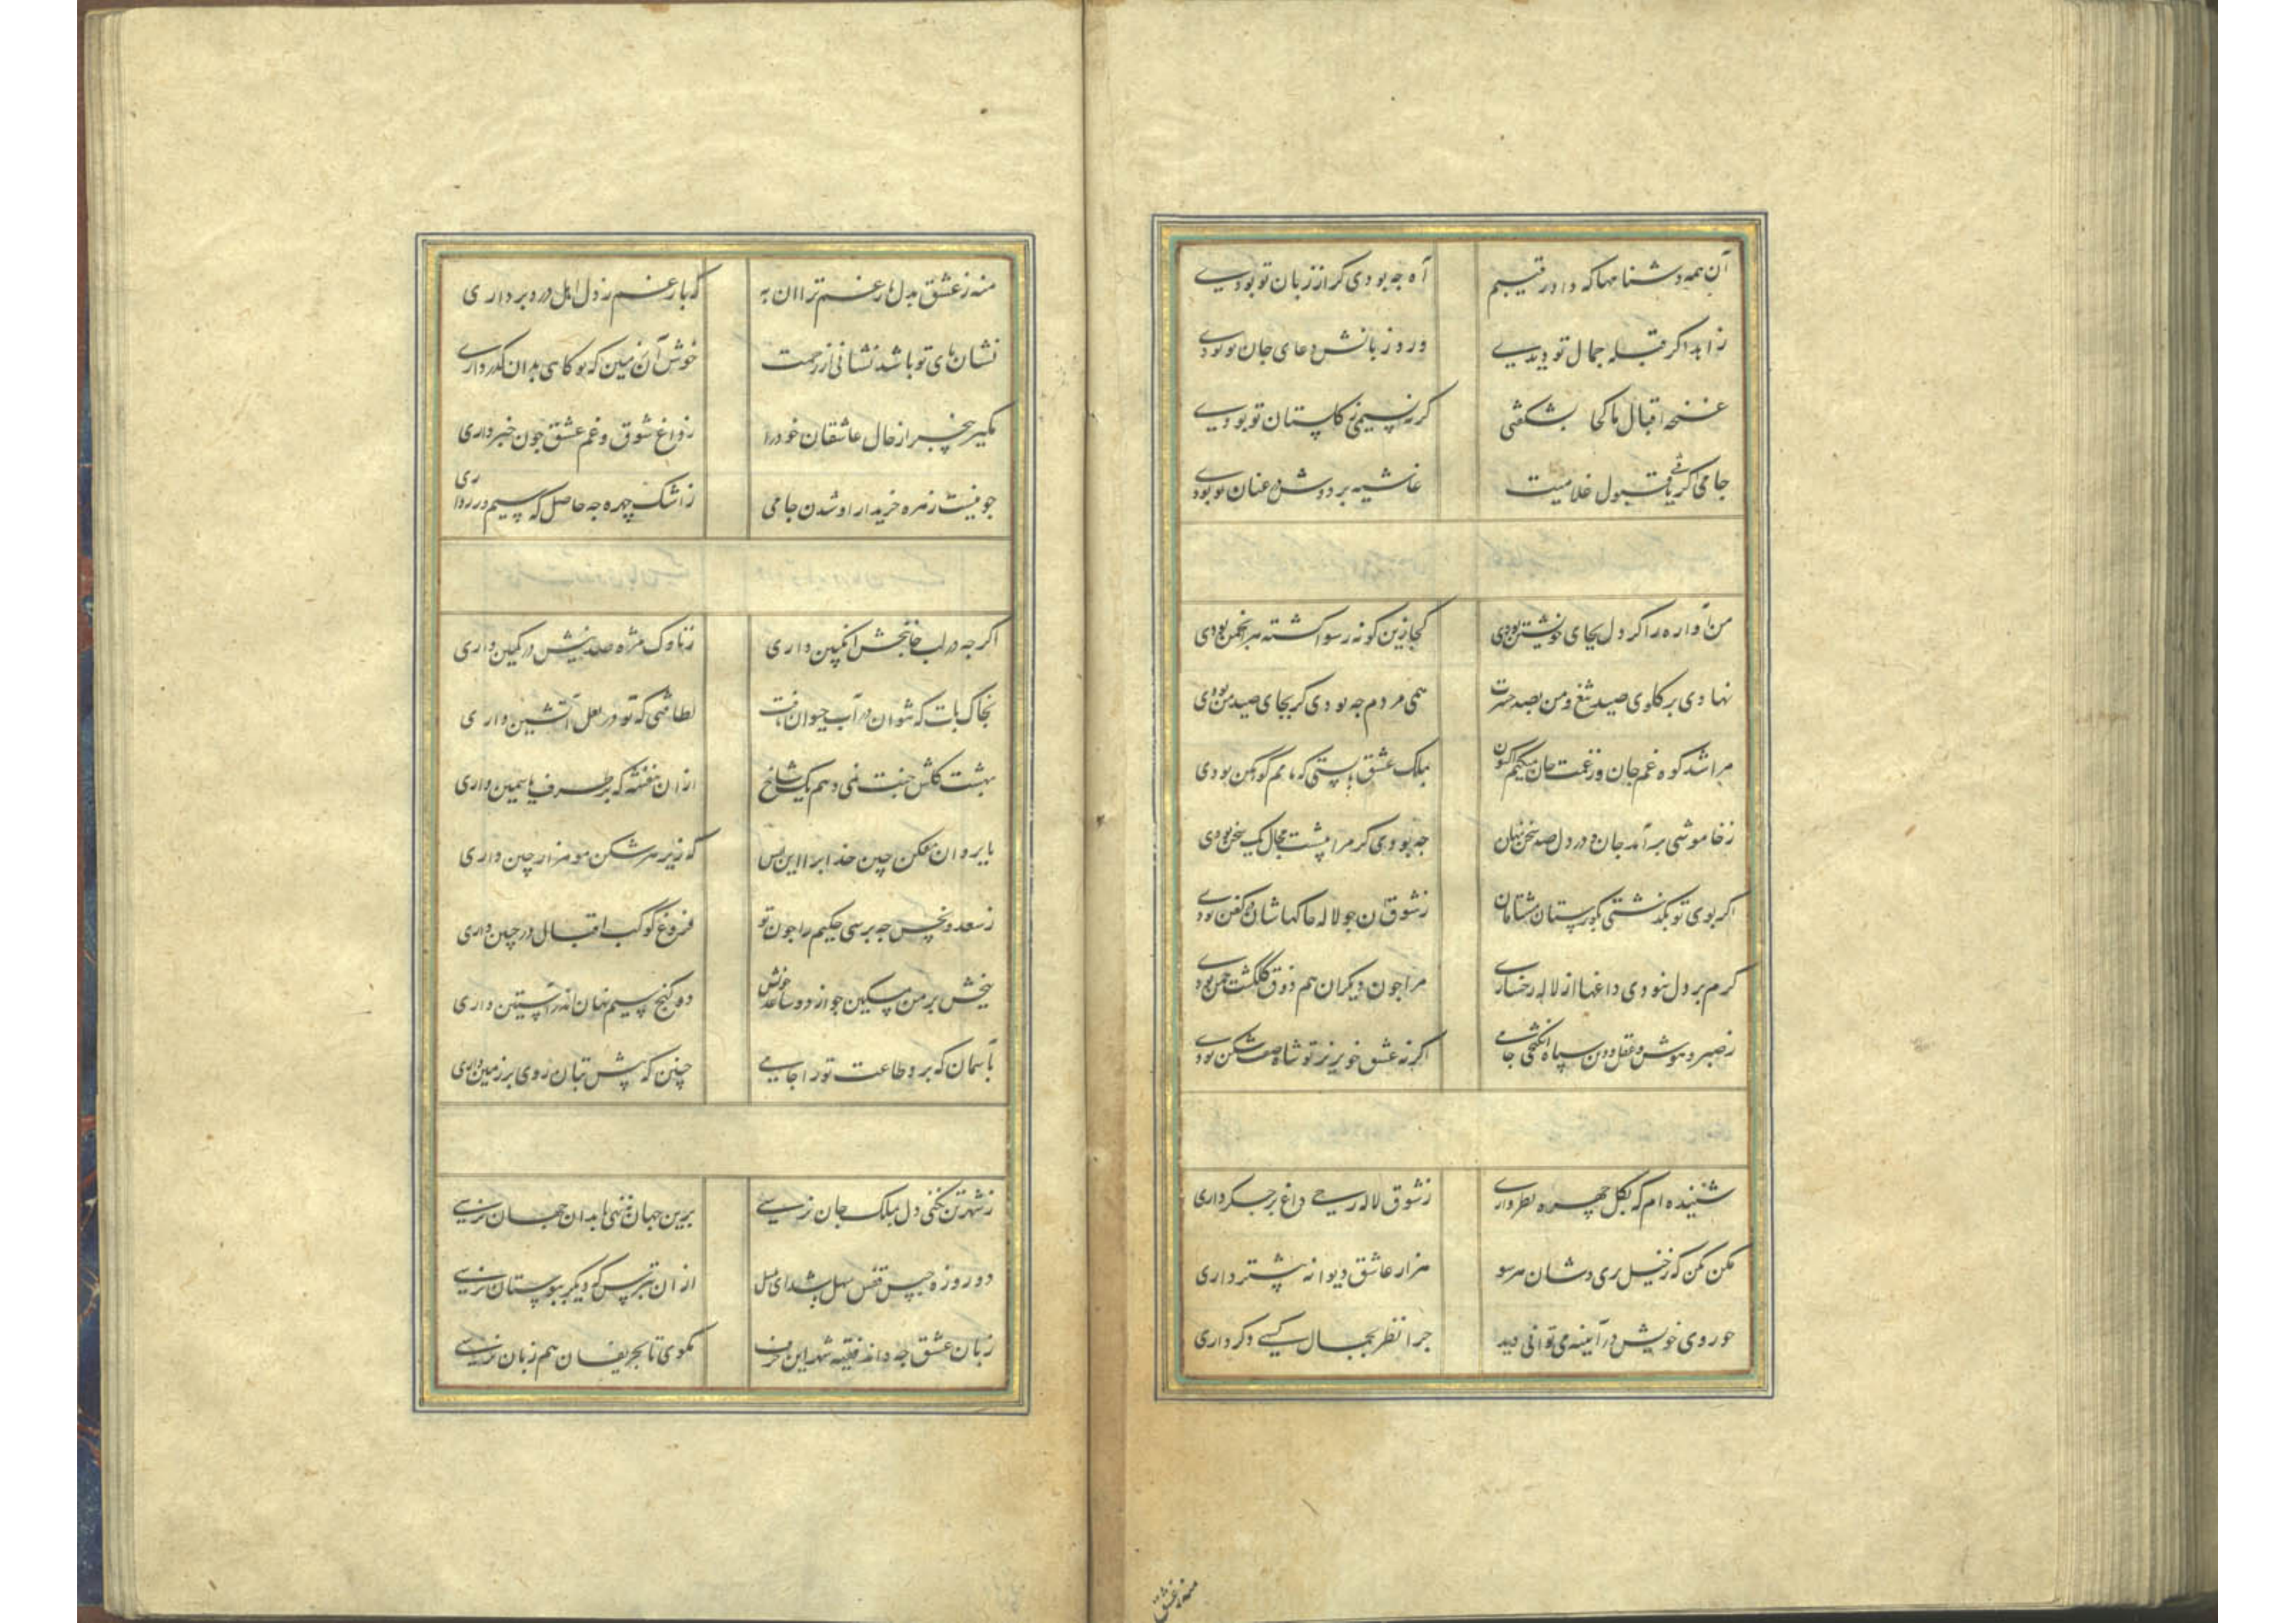 آن همه دشنامها که داد رقیبم
آه جه بودی کر از زبان تو بودی
زاهد اکر قبله جمال تو دیدی
ورد زبانش دعای جان تو بودی
غنچه اقبال ما کجا بشکفتی
کرنه نسیمی ز کلستان تو بودی
جامی اکر یافتی قبول غلامیت
غاشیه بر دوش و عنان تو بودی
من آواره را کر دل بجای خویشتن بودی
کجا زین کونه رسوا کشته هر انجمن بودی
نهادی بر کلوی صید تیغ و من بصد حسرت
همی مردم جه بودی کر بجای صید من بودی
مرا شد کوه غم جان وز غمت جان میکنم اکنون
بملک عشق بایستی که نامم کوهکن بودی
زخاموشی برآمد جان و در دل صد سخن پنهان
جه بودی کر مرا پیشت مجال یک سخن بودی
اکر بوی تو بکذشتی بکورستان مشتاقان
زشوق آن جو لاله جاکها شان در کفن بودی
کرم بر دل نبودی داغها از لاله رخساری
مرا جون دیکران هم ذوق کلکشت چمن بودی
زصبر و هوش و عقل و دین سپاه انکیختی جامی
اکرنه عشق خونریز تو شاه صف شکن بودی
شنیده ام که بکل چهره نظر داری
زشوق لاله رخی داغ بر جکر داری
مکن مکن که زخیل پری وشان هر سو
هزار عاشق دیوانه بیشتر داری
جو روی خویش در آیینه می توانی دید
جرا نظر بجمال کسی دکر داری
منه زعشق
منه زعشق بدل بار غم ترا آن به
که بار غم ز دل اهل درد برداری
نشان پای تو باشد نشانی از رحمت
خوش آن زمین که تو کاهی بدان کذر داری
مکیر بیخبر از حال عاشقان خود را
ز داغ شوق و غم عشق جون خبر داری
جو نیست زهره خریدار او شدن جامی
زاشک چهره جه حاصل که سیم و زر داری
اکرجه در لب جانبخش انکبین داری
زناوک مژه صد نیش در کمین داری
بخاک پات که نتوان در آب حیوان یافت
لطافتی که تو در لعل آتشین داری
بهشت کلشن جنت نمی دهم یک شاخ
از آن بنفشه که بر طرف یاسمین داری
بابروان مفکن چین خدایرا این بس
که زیر هر شکن مو هزار چین داری
ز سعد و نحس جه پرسی حکیم را جون تو
فروغ کوکب اقبال در جبین داری
ببخش بر من مسکین جو از دو ساعد خویش
دو کنج سیم نهان اندر آستین داری
بآسمان که برد طاعت تو را جامی
چنین که پیش بتان روی بر زمین داری
زشهر تن نکنی دل بملک جان نرسی
برین جهان ننهی پا بدان جهان نرسی
دو روزه حبس قفس سهل باشد ای بلبل
از آن بترس که دیکر ببوستان نرسی
زبان عشق جه داند فقیه شهر این حرف
مکوی تا بحریفان هم زبان نرسی